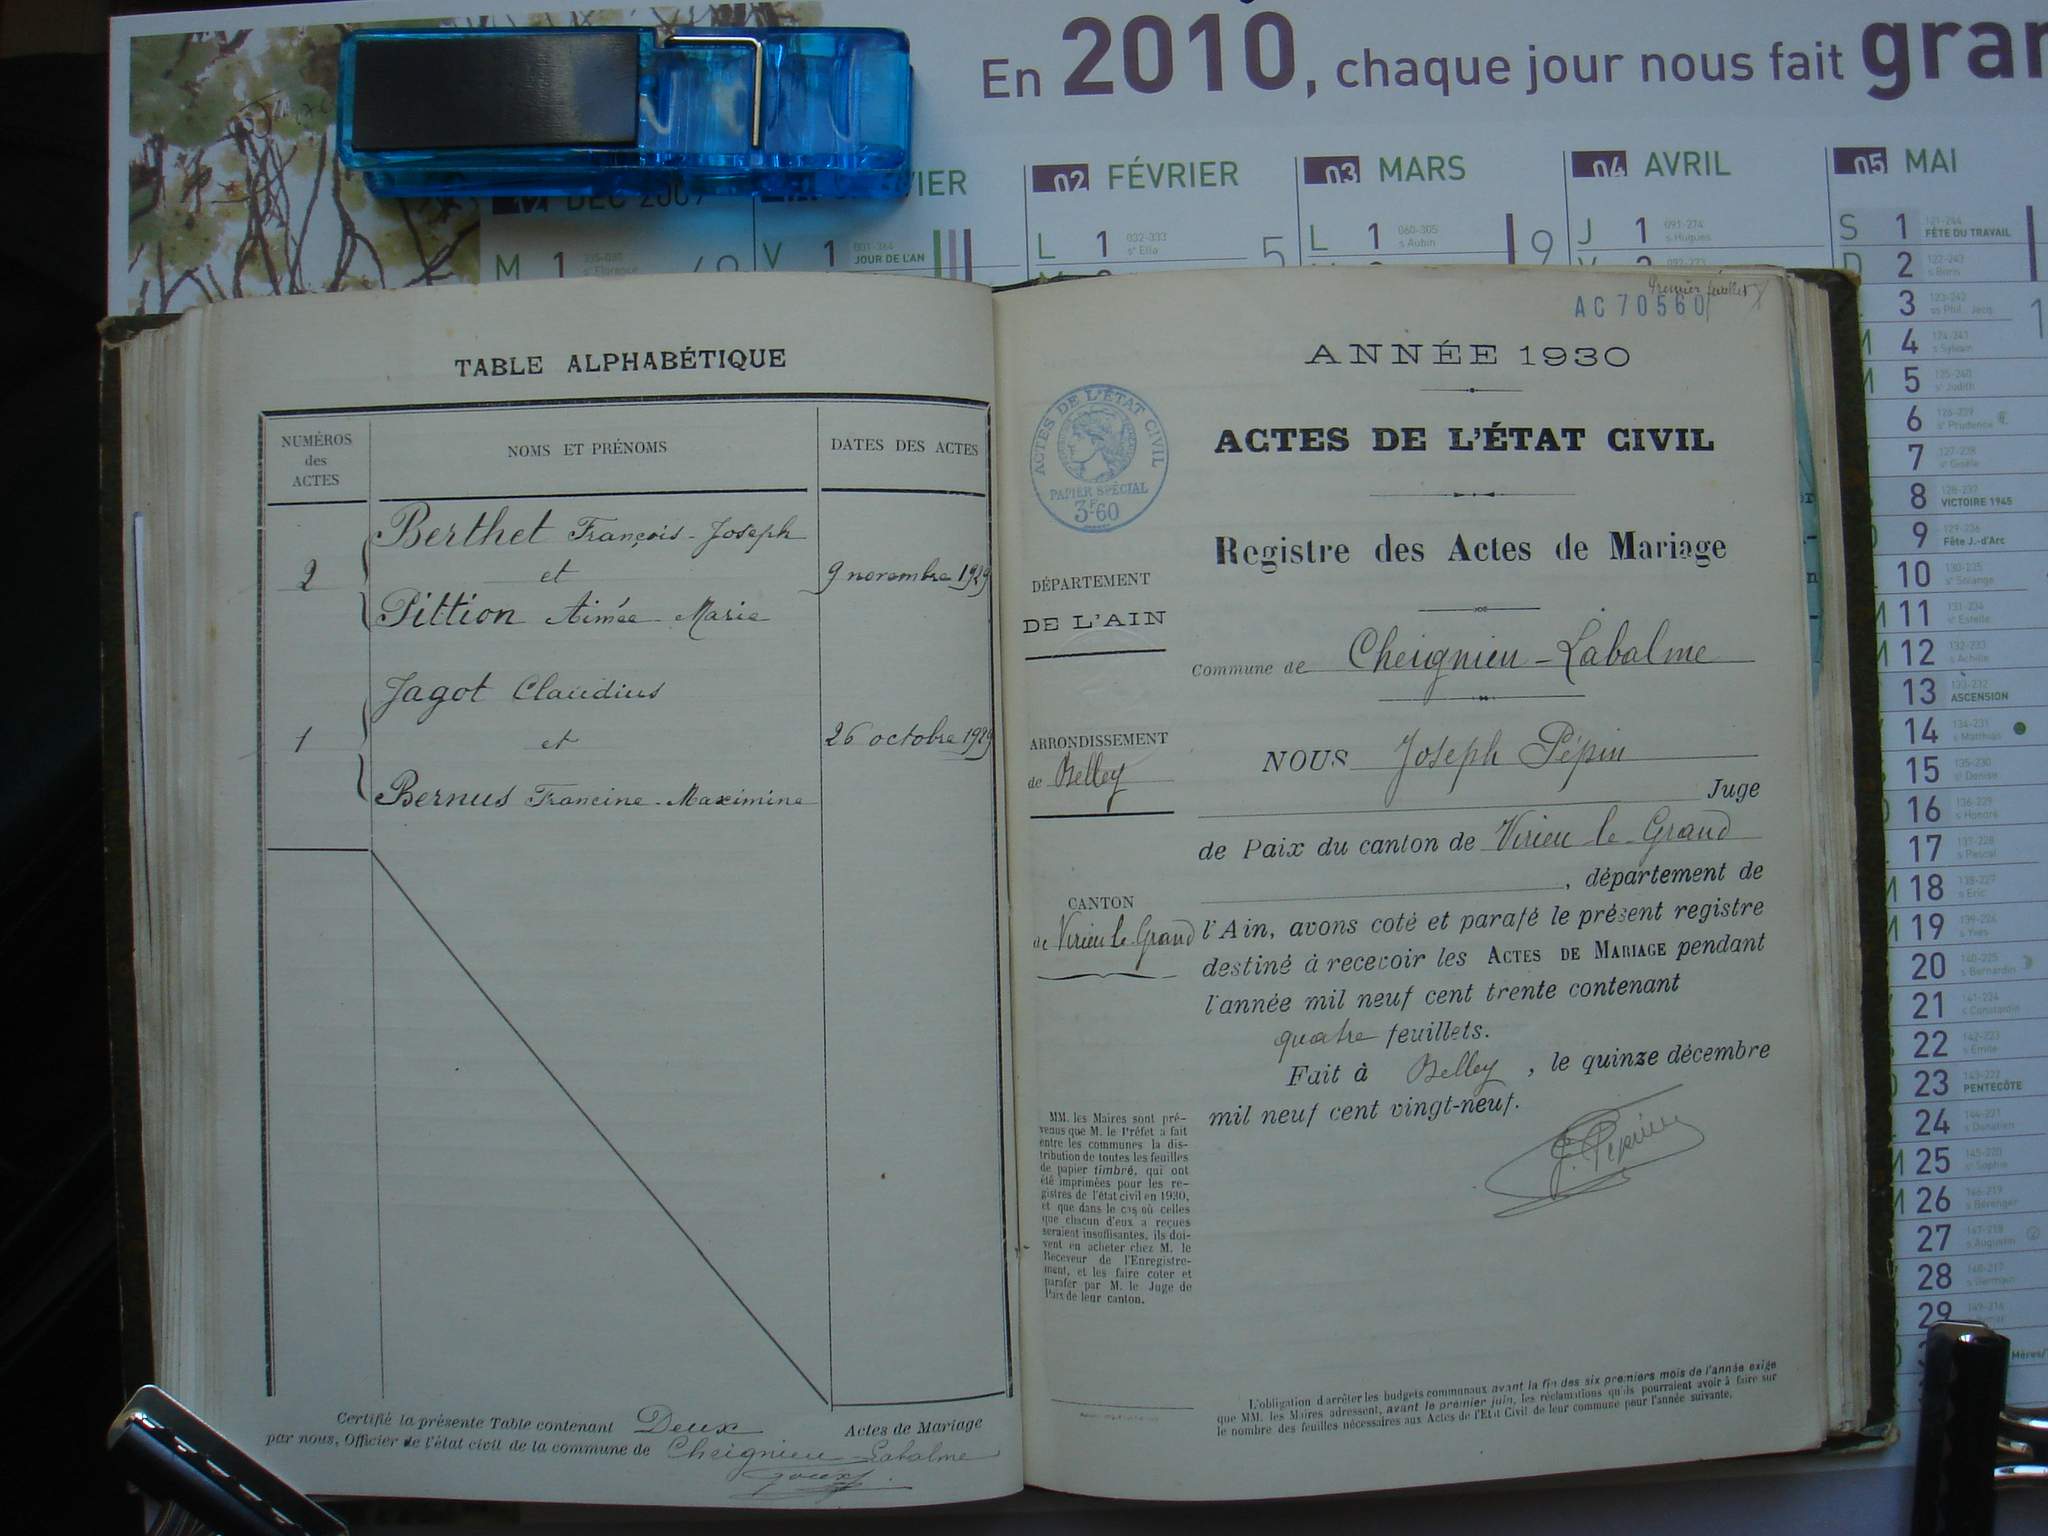 En 2010, chaque jour nous fait gran
DEC 2009
VIER
02 FÉVRIER
03 MARS
04 AVRIL
05 MAI
M 1
V 1 001-364 JOUR DE L'AN
L 1 032-333 5
L 1 060-305 s Aubin 9
J 1 091-274 s Hugues
S 1 121-244 FÊTE DU TRAVAIL
2 122-243 s Boris
3
4
5
6
7
8 VICTOIRE 1945
9 Fête J.-d'Arc
10
11
12
13 ASCENSION
14
15
16
17
18
19
20
21
22
23 PENTECÔTE
24
25
26
27
28
29
TABLE ALPHABÉTIQUE
NUMÉROS des ACTES
NOMS ET PRÉNOMS
DATES DES ACTES
Berthet François-Joseph
2 et 9 novembre 1929
Pittion Aimée-Marie
Jagot Claudius
1 et 26 octobre 1929
Bernus Francine-Maximine
Certifié la présente Table contenant Deux Actes de Mariage
par nous, Officier de l'état civil de la commune de Cheignieu-Labalme
Premier feuillet
AC 70560
ANNÉE 1930
ACTES DE L'ÉTAT CIVIL
PAPIER SPÉCIAL
3F60
ACTES DE L'ÉTAT CIVIL
Registre des Actes de Mariage
DÉPARTEMENT
DE L'AIN
Commune de Cheignieu-Labalme
ARRONDISSEMENT
de Belley
CANTON
de Virieu le Grand
NOUS Joseph Pépin
Juge
de Paix du canton de Virieu le Grand
, département de
l'Ain, avons coté et parafé le présent registre
destiné à recevoir les ACTES DE MARIAGE pendant
l'année mil neuf cent trente contenant
quatre feuillets.
Fait à Belley, le quinze décembre
mil neuf cent vingt-neuf.
J. Pépin
MM. les Maires sont pré-
venus que M. le Préfet a fait
entre les communes la dis-
tribution de toutes les feuilles
de papier timbré, qui ont
été imprimées pour les re-
gistres de l'état civil en 1930,
et que dans le cas où celles
que chacun d'eux a reçues
seraient insuffisantes, ils doi-
vent en acheter chez M. le
Receveur de l'Enregistre-
ment, et les faire coter et
parafer par M. le Juge de
Paix de leur canton.
L'obligation d'arrêter les budgets communaux avant la fin des six premiers mois de l'année exige
que MM. les Maires adressent, avant le premier juin, les réclamations qu'ils pourraient avoir à faire sur
le nombre des feuilles nécessaires aux Actes de l'Etat Civil de leur commune pour l'année suivante.